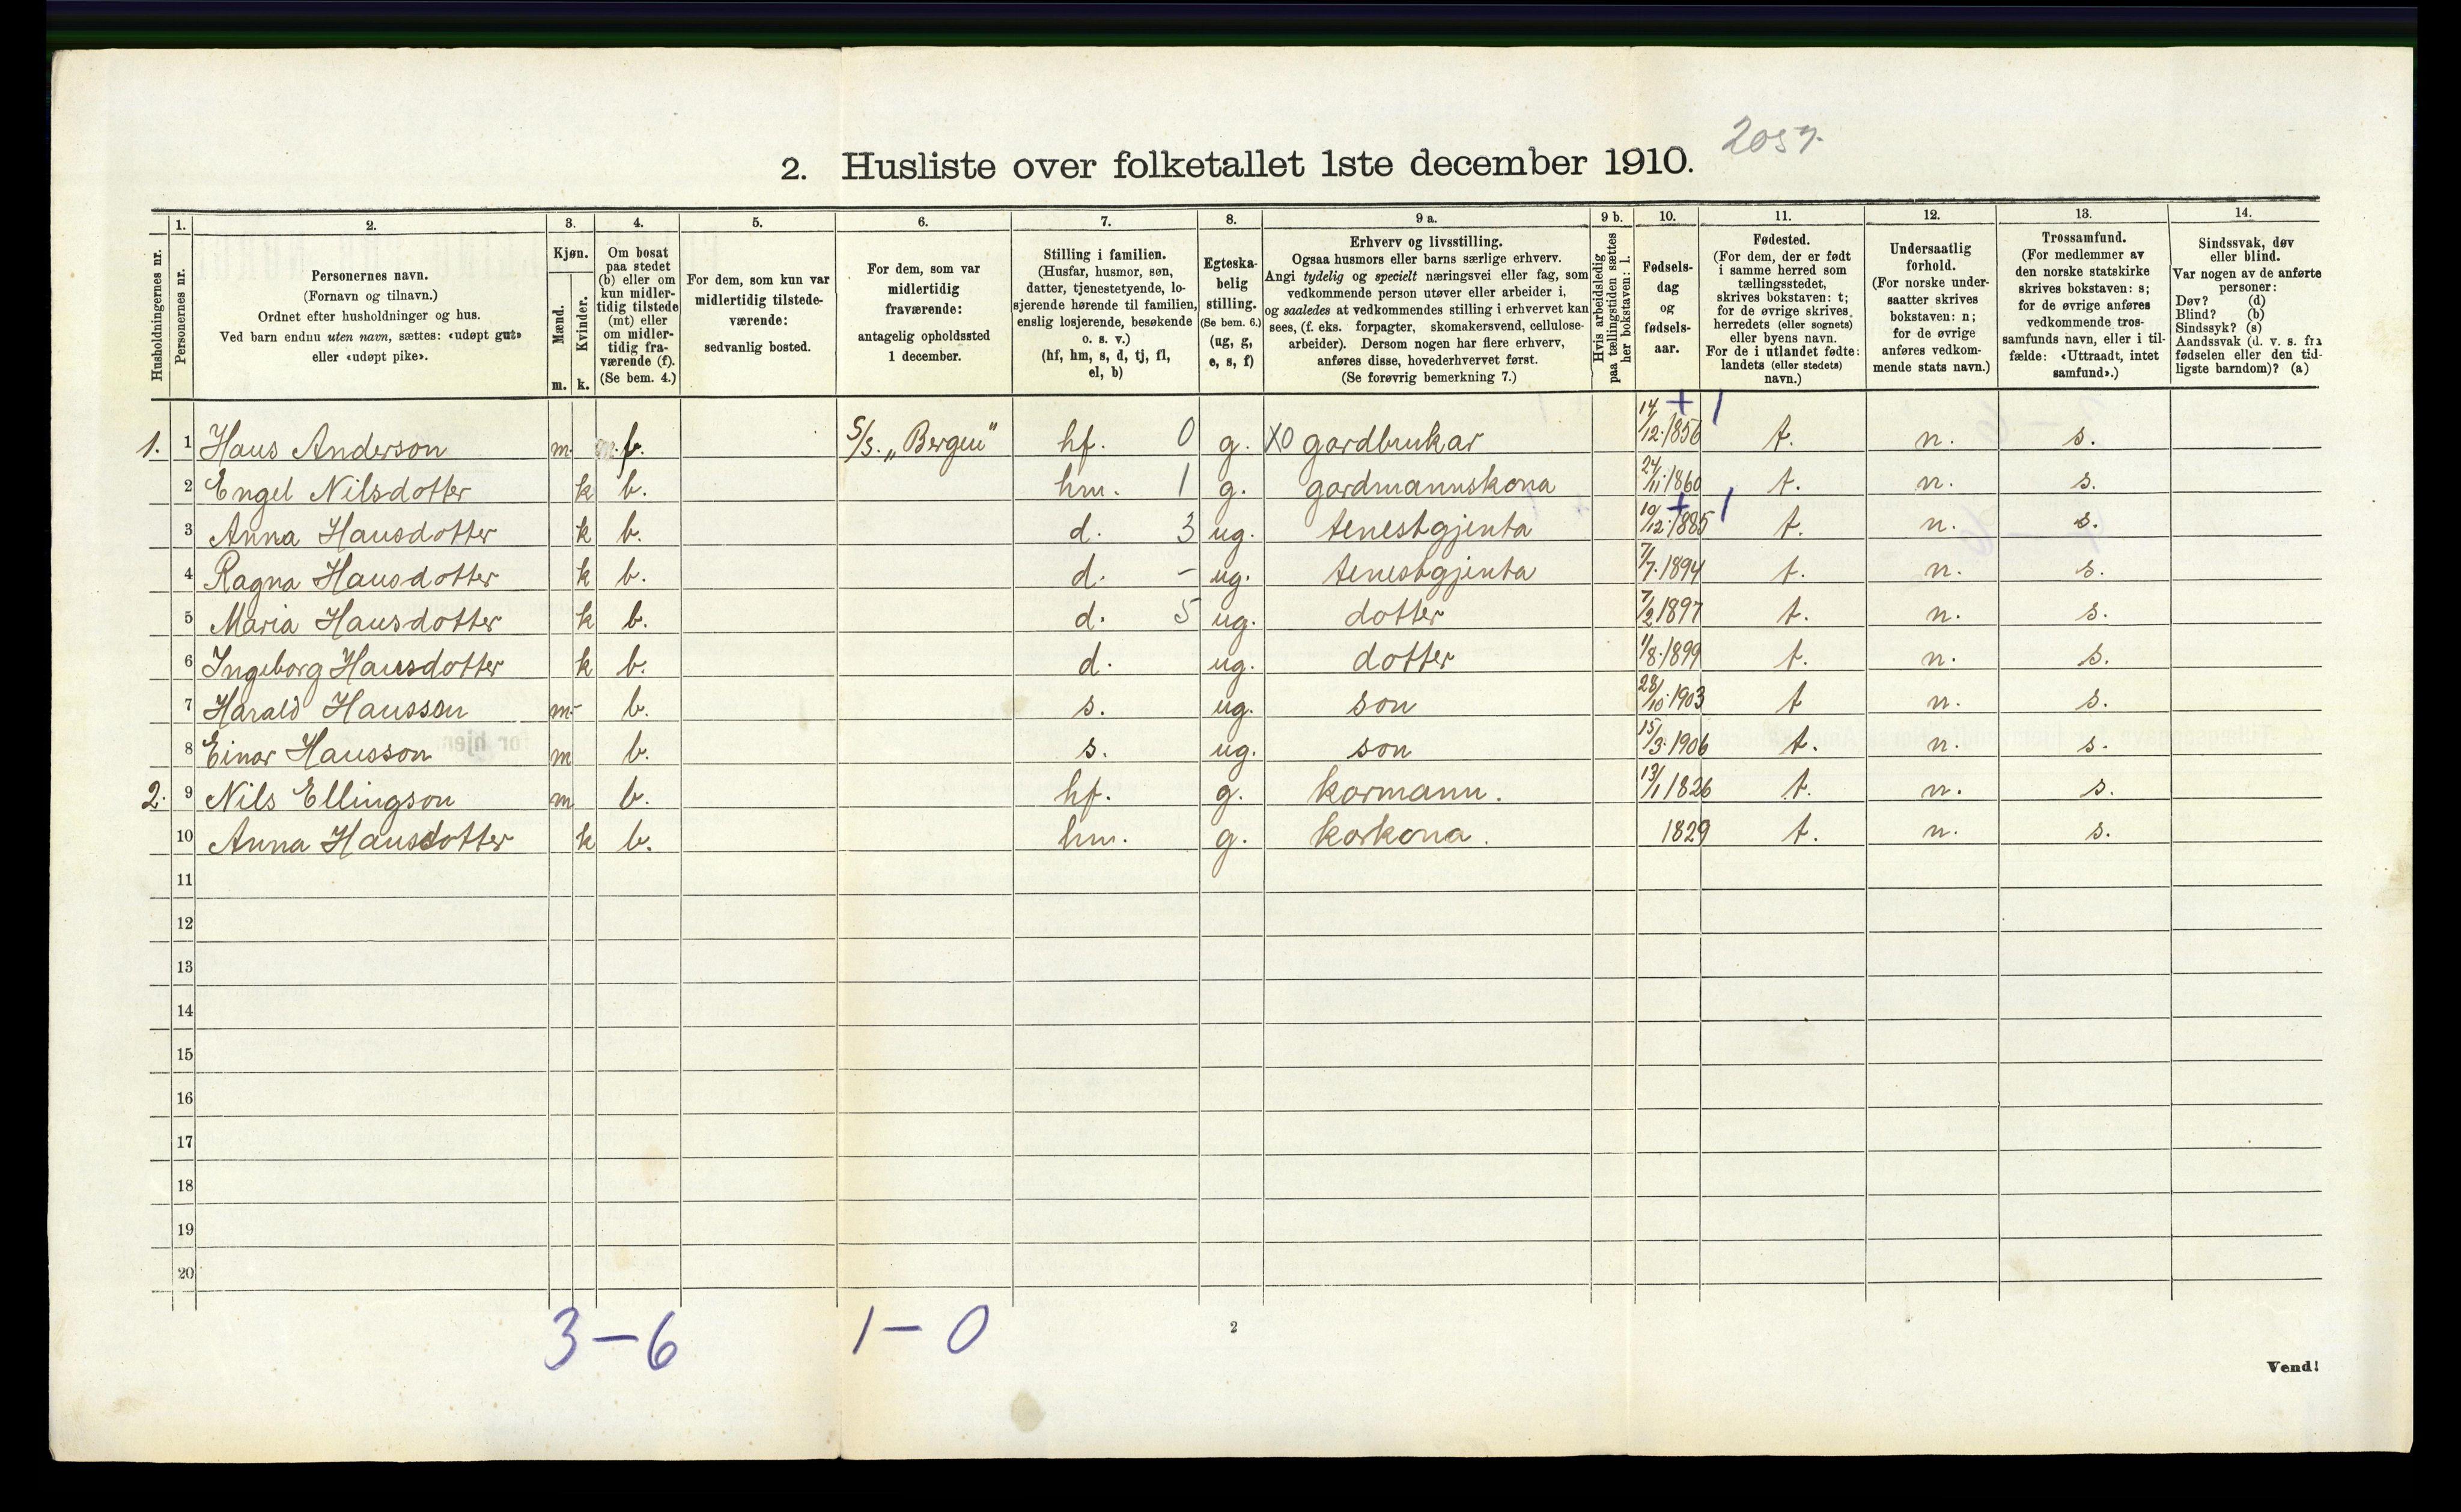 2057.
2. Husliste over folketallet 1ste december 1910.
Husholdningernes nr.
1. Personernes nr.
2. Personernes navn.
(Fornavn og tilnavn.)
Ordnet efter husholdninger og hus.
Ved barn endnu uten navn, sættes: «udøpt gut»
eller «udøpt pike».
3. Kjøn.
Mænd. m.
Kvinder. k.
4. Om bosat
paa stedet
(b) eller om
kun midler-
tidig tilstede
(mt) eller
om midler-
tidig fra-
værende (f).
(Se bem. 4.)
5. For dem, som kun var
midlertidig tilstede-
værende:
sedvanlig bosted.
6. For dem, som var
midlertidig
fraværende:
antagelig opholdssted
1 december.
7. Stilling i familien.
(Husfar, husmor, søn,
datter, tjenestetyende, lo-
sjerende hørende til familien,
enslig losjerende, besøkende
o. s. v.)
(hf, hm, s, d, tj, fl,
el, b)
8. Egteska-
belig
stilling.
(Se bem. 6.)
(ug, g,
e, s, f)
9 a. Erhverv og livsstilling.
Ogsaa husmors eller barns særlige erhverv.
Angi tydelig og specielt næringsvei eller fag, som
vedkommende person utøver eller arbeider i,
og saaledes at vedkommendes stilling i erhvervet kan
sees, (f. eks. forpagter, skomakersvend, cellulose-
arbeider). Dersom nogen har flere erhverv,
anføres disse, hovederhvervet først.
(Se forøvrig bemerkning 7.)
9 b. Hvis arbeidsledig
paa tællingstiden sættes
her bokstaven: l.
10. Fødsels-
dag
og
fødsels-
aar.
11. Fødested.
(For dem, der er født
i samme herred som
tællingsstedet,
skrives bokstaven: t;
for de øvrige skrives
herredets (eller sognets)
eller byens navn.
For de i utlandet fødte:
landets (eller stedets)
navn.)
12. Undersaatlig
forhold.
(For norske under-
saatter skrives
bokstaven: n;
for de øvrige
anføres vedkom-
mende stats navn.)
13. Trossamfund.
(For medlemmer av
den norske statskirke
skrives bokstaven: s;
for de øvrige anføres
vedkommende tros-
samfunds navn, eller i til-
fælde: «Uttraadt, intet
samfund».)
14. Sindssvak, døv
eller blind.
Var nogen av de anførte
personer:
Døv? (d)
Blind? (b)
Sindssyk? (s)
Aandssvak (d. v. s. fra
fødselen eller den tid-
ligste barndom)? (a)
1. 1 Hans Anderson m. f. S/S. „Bergen" hf. 0 g. X0 gardbrukar 14/12. 1856 + 1 t. n. s.
2 Engel Nilsdotter k b. hm. 1 g. gardmannskona 24/11 1860 t. n. s.
3 Anna Hansdotter k b. d. 3 ug. tenestgjenta 10/12. 1885 + 1 t. n. s.
4 Ragna Hansdotter k b. d. - ug. tenestgjenta 7/7. 1894 t. n. s.
5 Maria Hansdotter k b. d. 5 ug. dotter 7/2 1897 t. n. s.
6 Ingeborg Hansdotter k b. d. ug. dotter 11/8. 1899 t. n. s.
7 Harald Hansson m. b. s. ug. son 28/10. 1903 t n. s.
8 Einar Hansson m b. s. ug. son 15/3. 1906 t. n. s.
2. 9 Nils Ellingson m b. hf. g. karmann. 13/1 1826 t. n. s.
10 Anna Hansdotter k b. hm. g. karkona. 1829 t. n. s.
11
12
13
14
15
16
17
18
19
20
3 - 6 1 - 0
2
Vend!